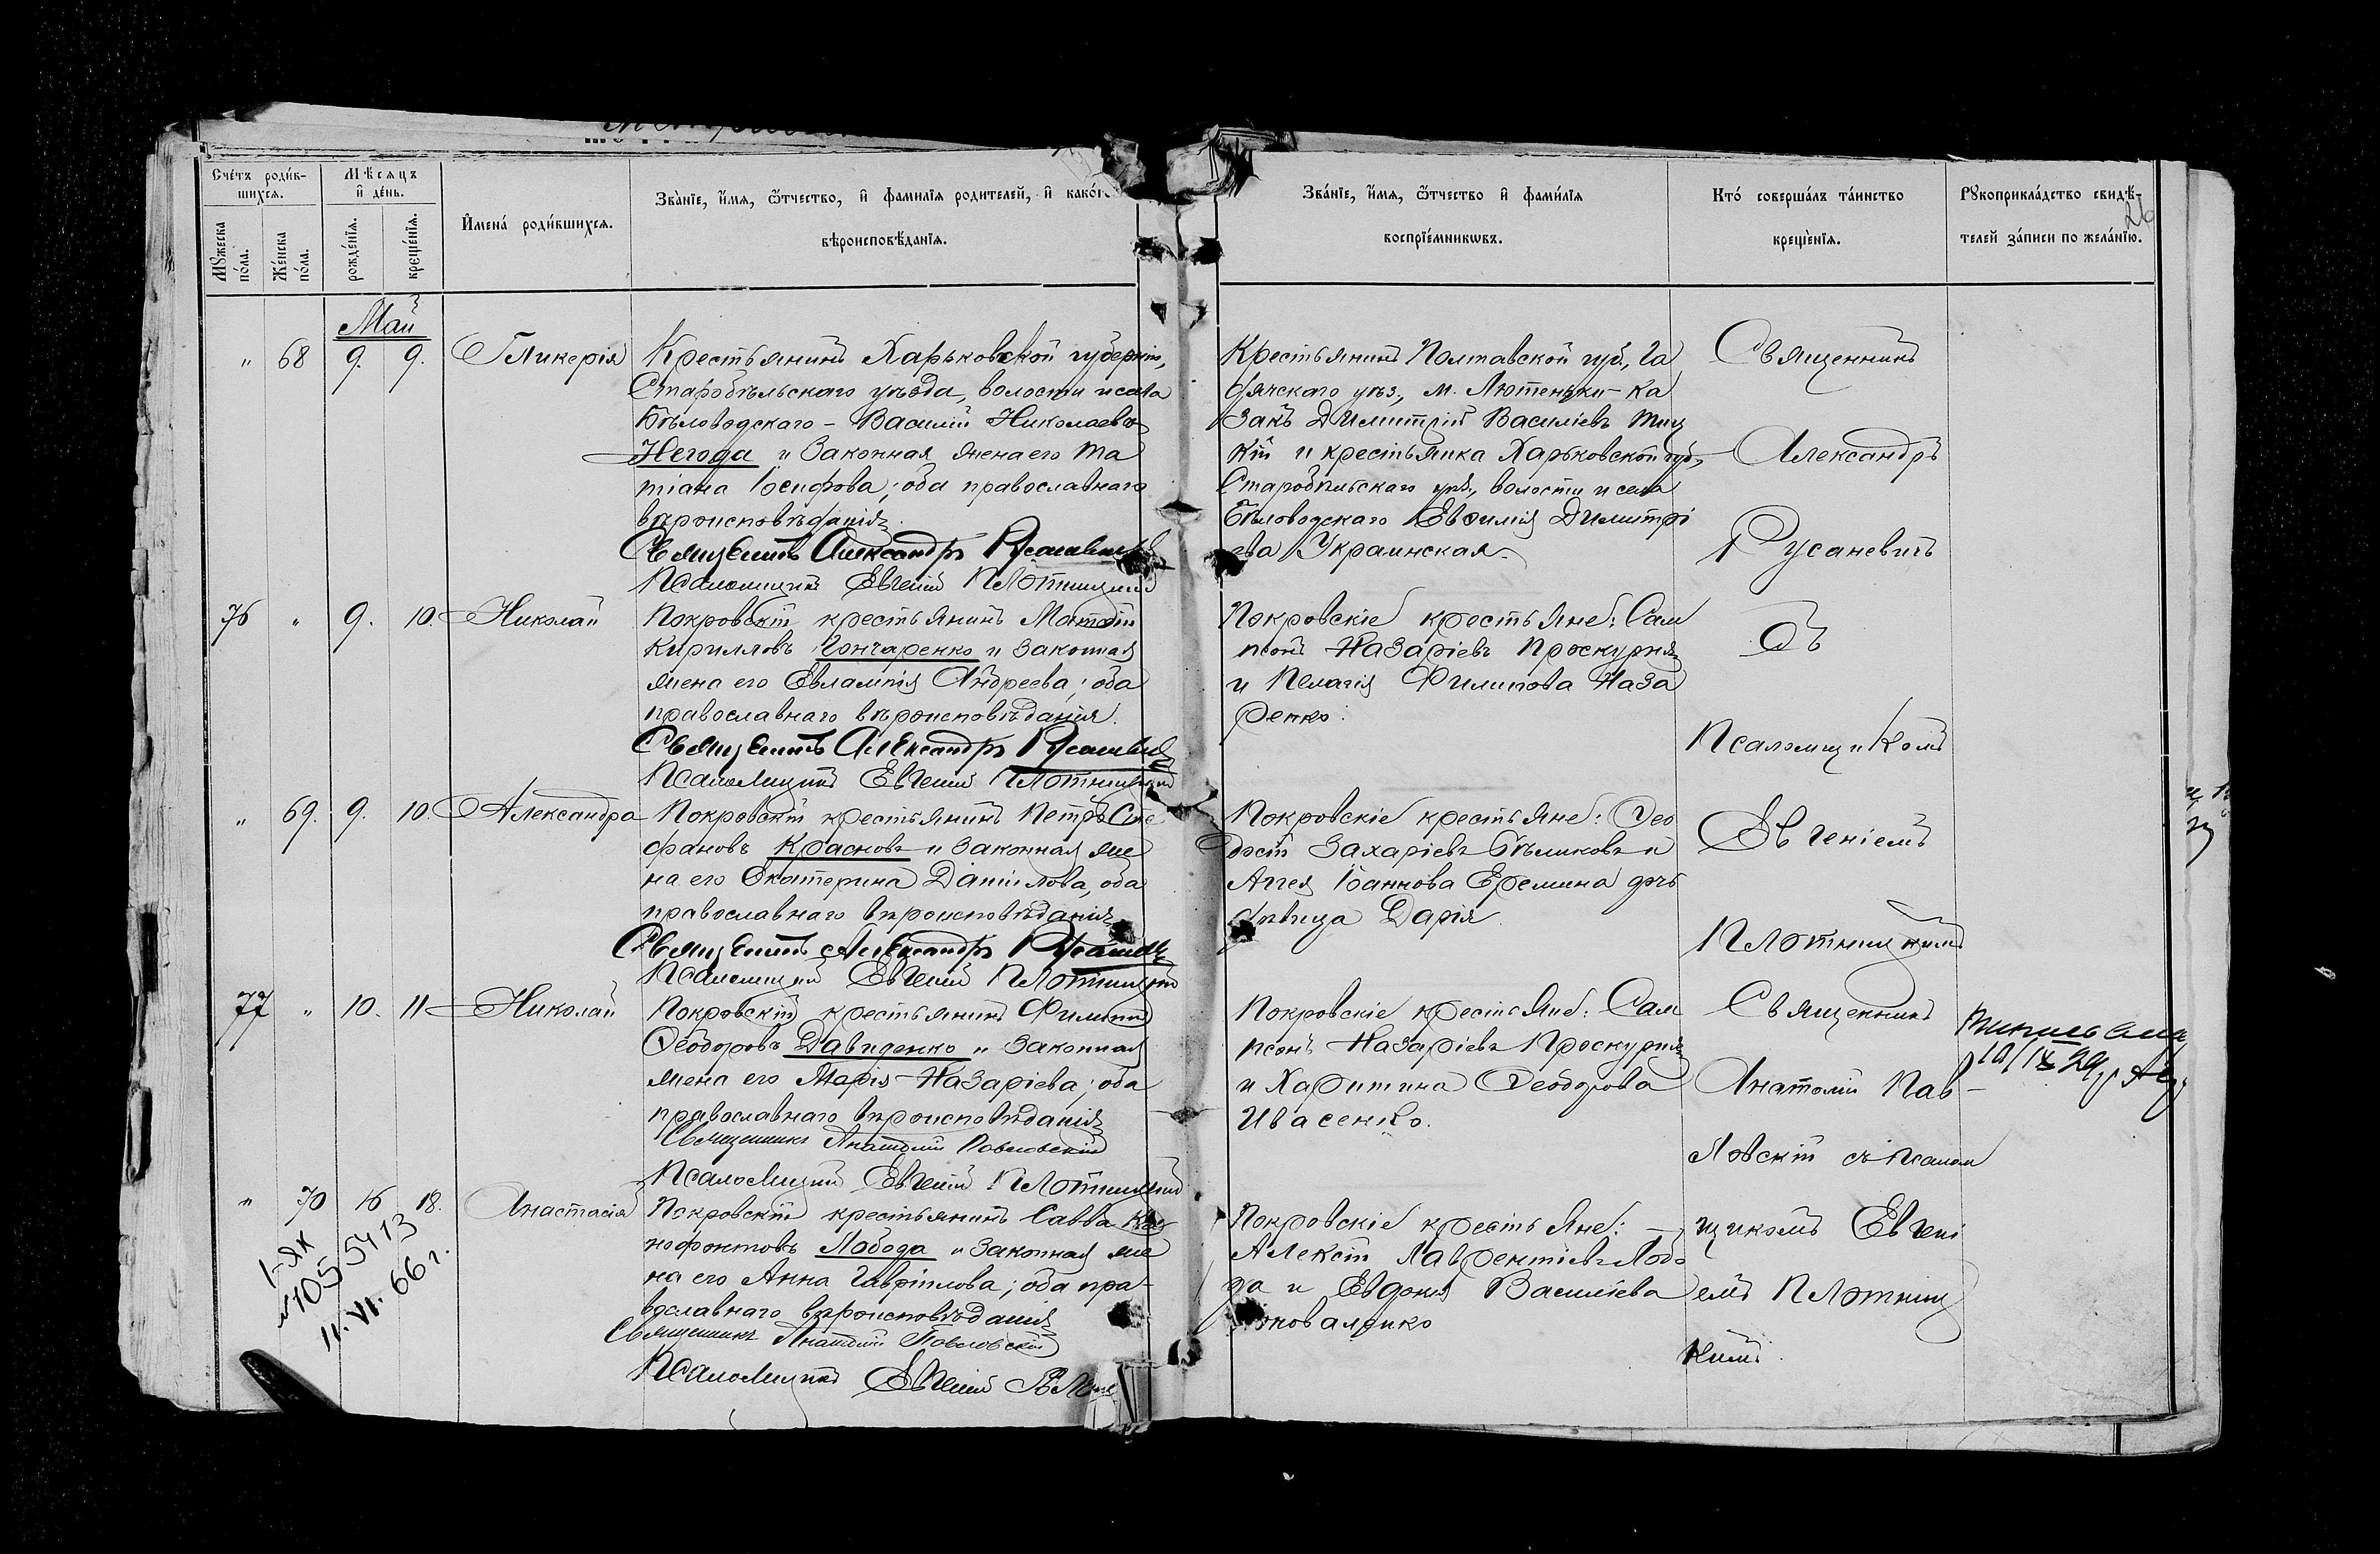 Счетъ родив-
шихся.
Мужеска
пола.
Женска
пола.
Мѣсяцъ
и день.
рожденія.
крещенія.
Имена родившихся.
Званіе, имя, отчество, и фамилія родителей, и каког
вѣроисповѣданія.
Званіе, имя, отчество и фамилія
воспріемниковъ.
Кто совершалъ таинство
крещенія.
Рукоприкладство свидѣ-
телей записи по желанію.
26
Май
" 68 9. 9. Гликерія
Крестьянинъ Харьковской губерніи,
Старобѣльскаго уѣзда, волости и села
Бѣловодскаго – Василій Николаевъ
Негода и законная жена его Та
тіана Іосифова; оба православнаго
вѣроисповѣданія.
Священникъ Александръ Русаневичъ
Псаломщикъ Евгеній Плотницкій
Крестьянинъ Полтавской губ., Га
дячскаго уѣз., м. Лютеньки – ка
закъ Димитрій Василіевъ
и крестьянка Харьковской губ.,
Старобѣльскаго уѣз., волости и села
Бѣловодскаго Евфимія Димитрі
ева Украинская.
Священникъ
Александръ
Русаневичъ
съ
Псаломщикомъ
Евгеніемъ
Плотницкимъ
76 " 9. 10. Николай
Покровскій крестьянинъ Матѳій
Кирилловъ Гончаренко и законная
жена его Евлампія Андреева; оба
православнаго вѣроисповѣданія.
Священникъ Александръ Русаневичъ
Псаломщикъ Евгеній Плотницкій
Покровскіе крестьяне: Сам
псонъ Назаріевъ Проскурня
и Пелагія Филипова Наза
ренко.
" 69. 9. 10. Александра
Покровскій крестьянинъ Петръ Сте
фановъ Красновъ и законная же
на его Екатерина Даніилова, оба
православнаго вѣроисповѣданія
Священникъ Александръ Русаневичъ
Псаломщикъ Евгеній Плотницкій
Покровскіе крестьяне: Ѳео
досій Захаріевъ Бѣликовъ и
Іоаннова Еремина дочь
дѣвица Дарія
77 " 10. 11 Николай
Покровскій крестьянинъ Филиппъ
Ѳеодоровъ Давиденко и законная
жена его Марія Назаріева; оба
православнаго вѣроисповѣданія
Священникъ Анатолій Павловскій
Псаломщикъ Евгеній Плотницкій
Покровскіе крестьяне: Сам
псонъ Назаріевъ Проскурня
и Харитина Ѳеодорова
Ивасенко.
Священникъ
Анатолій Пав-
ловскій съ псалом
щикомъ Евгені
емъ Плотниц
кимъ.
" 70 16 18. Анастасія
Покровскій крестьянинъ Савва Ксе
нофонтовъ Лобода и законная же
на его Анна Гавріилова; оба пра-
вославнаго вѣроисповѣданія
Священникъ Анатолій Павловскій
Псаломщикъ Евгеній
Покровскіе крестьяне: –
Алексій Лаврентіевъ Лобо
да и Евдокія Василіева
Коноваленко
I-ЯК
№1055413
11.VI.66г.